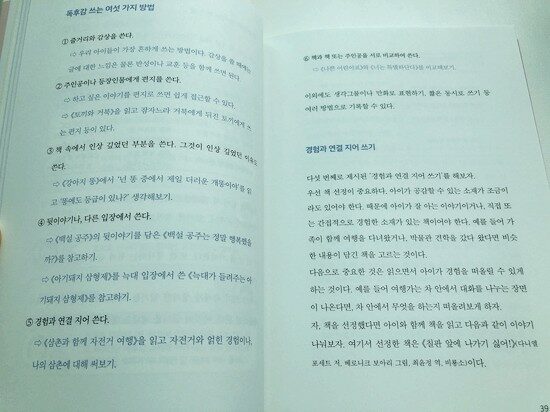 독후감 쓰는 여섯 가지 방법
① 줄거리와 감상을 쓴다.
⇨ 우리 아이들이 가장 흔하게 쓰는 방법이다. 감상을 쓸 때에는
글에 대한 느낌은 물론 반성이나 교훈 등을 함께 쓰면 된다.
② 주인공이나 등장인물에게 편지를 쓴다.
⇨ 하고 싶은 이야기를 편지로 쓰면 쉽게 접근할 수 있다.
⇨ 《토끼와 거북》을 읽고 잠자느라 거북에게 뒤진 토끼에게 쓰
는 편지 등이 있다.
③ 책 속에서 인상 깊었던 부분을 쓴다. 그것이 인상 깊었던 이유도
쓴다.
⇨ 《강아지 똥》에서 '넌 똥 중에서 제일 더러운 개똥이야'를 읽
고 '똥에도 등급이 있나?' 생각해보기.
④ 뒷이야기나, 다른 입장에서 쓴다.
⇨ 《백설 공주》의 뒷이야기를 담은 《백설 공주는 정말 행복했을
까?》를 참고하기.
⇨ 《아기돼지 삼형제》를 늑대 입장에서 쓴 《늑대가 들려주는 아
기돼지 삼형제》를 참고하기.
⑤ 경험과 연결 지어 쓴다.
⇨ 《삼촌과 함께 자전거 여행》을 읽고 자전거와 얽힌 경험이나,
나의 삼촌에 대해 써보기.
⑥ 책과 책 또는 주인공을 서로 비교하여 쓴다.
⇨ 《나쁜 어린이표》와 《너는 특별하단다》를 비교해보기.
이외에도 생각그물이나 만화로 표현하기, 짧은 동시로 쓰기 등
여러 방법으로 기록할 수 있다.
경험과 연결 지어 쓰기
다섯 번째로 제시된 '경험과 연결 지어 쓰기'를 해보자.
우선 책 선정이 중요하다. 아이가 공감할 수 있는 소재가 조금이
라도 있어야 한다. 때문에 아이가 잘 아는 이야기이거나, 직접 또
는 간접적으로 경험한 소재가 있는 책이어야 한다. 예를 들어 가
족이 함께 여행을 다녀왔거나, 박물관 견학을 갔다 왔다면 비슷
한 내용이 담긴 책을 고르는 것이다.
다음으로 중요한 것은 읽으면서 아이가 경험을 떠올릴 수 있게
하는 것이다. 예를 들어 여행가는 차 안에서 대화를 나누는 장면
이 나온다면, 차 안에서 무엇을 하는지 떠올려보게 하자.
자, 책을 선정했다면 아이와 함께 책을 읽고 다음과 같이 이야기
나눠보자. 여기서 선정한 책은 《칠판 앞에 나가기 싫어!》(다니엘
포세트 저, 베로니크 보아리 그림, 최윤정 역, 비룡소)이다.
39